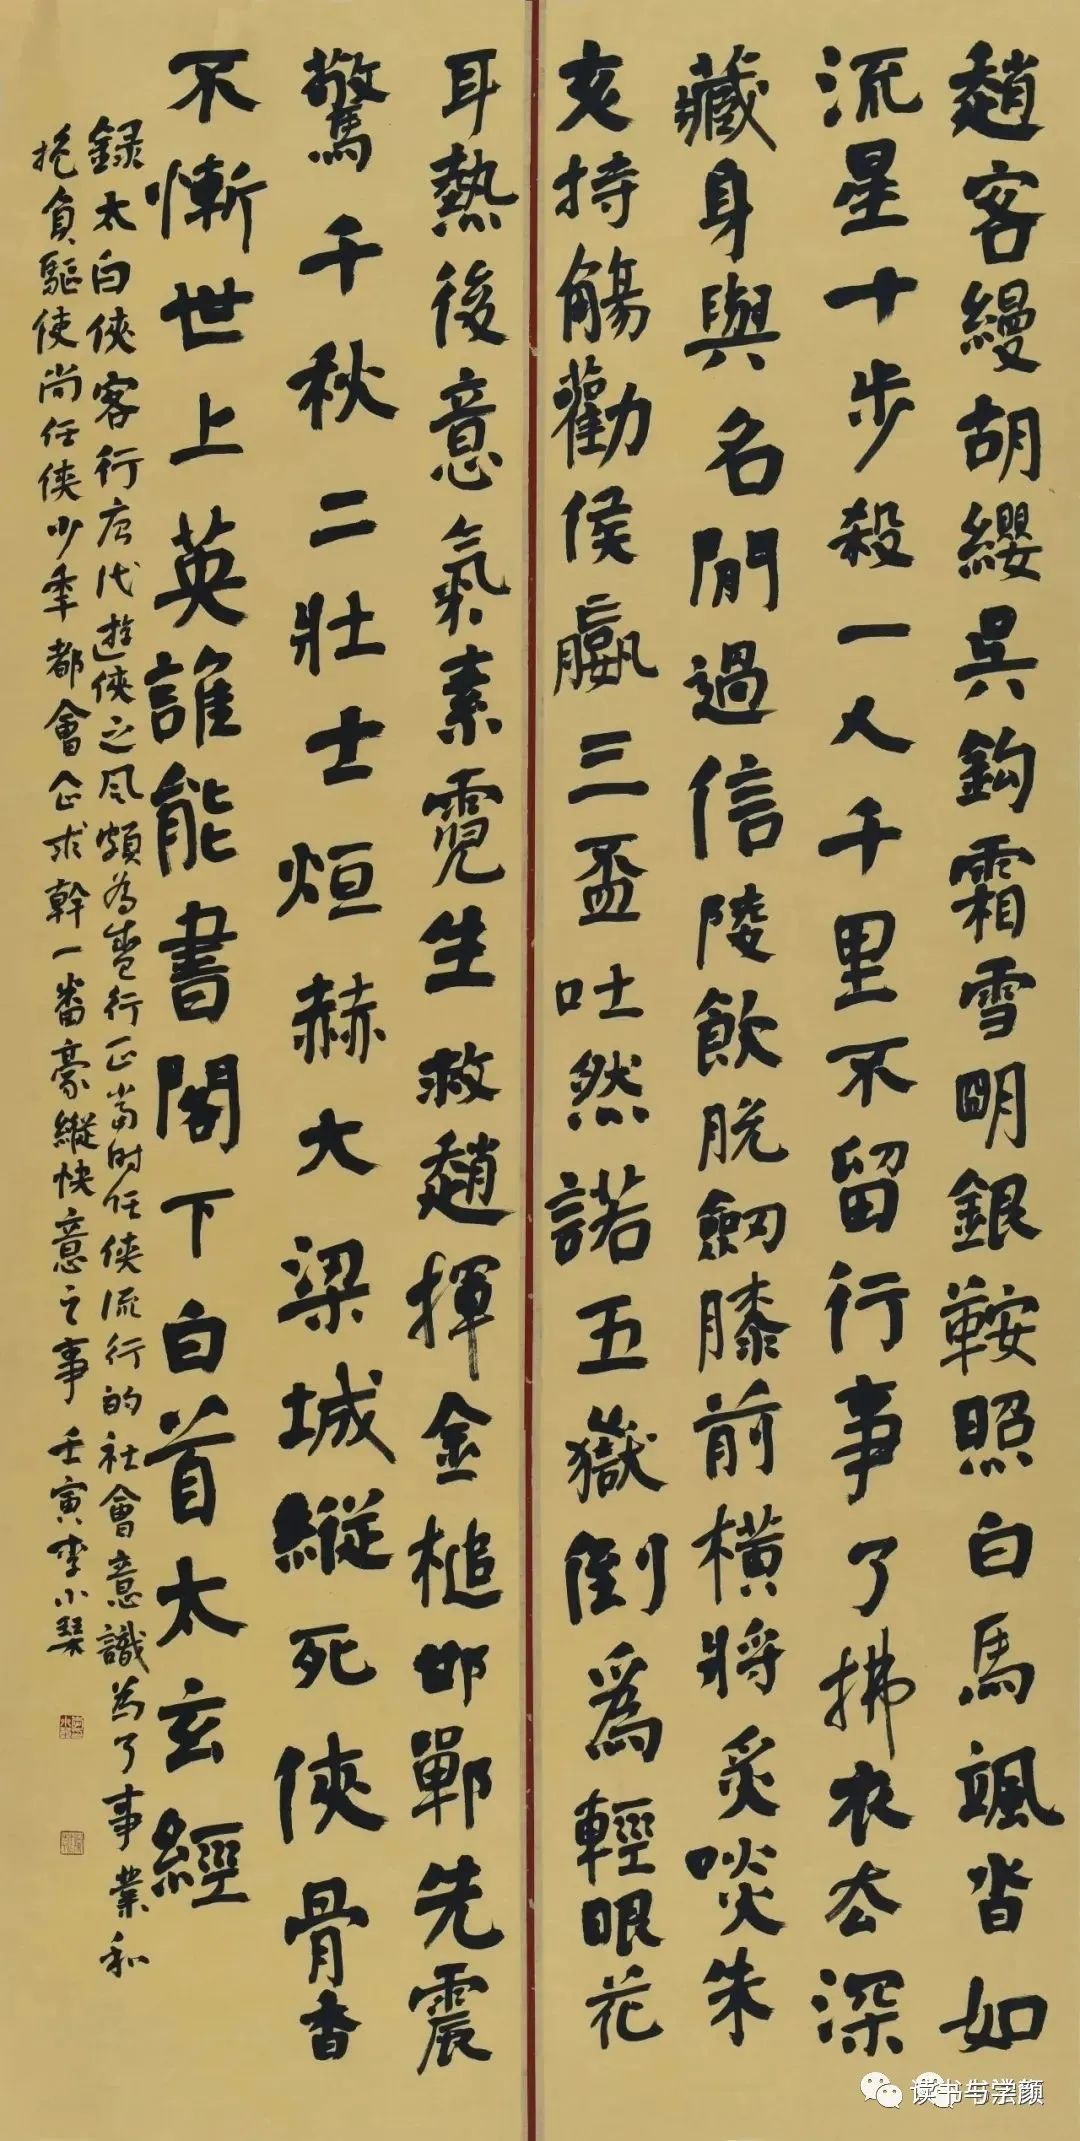 趙客縵胡纓吳鈎霜雪明銀鞍照白馬颯沓如
流星十步殺一人千里不留行事了拂衣去深
藏身與名閒過信陵飲脫劒膝前橫將炙啖朱
亥持觴勸侯嬴三盃吐然諾五嶽倒爲輕眼花
耳熱後意氣素霓生救趙揮金槌邯鄲先震
驚千秋二壯士烜赫大梁城縱死俠骨香
不慚世上英誰能書閣下白首太玄經
録太白俠客行唐代遊俠之風頗為盛行正當時任俠流行的社會意識為了事業和
抱負驅使尚任俠少年都會企求幹一番豪縱快意之事壬寅李小琴
读书与学颜